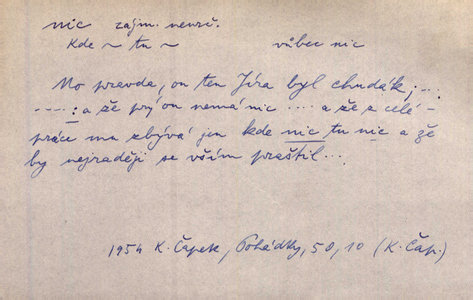 nic zájm. neurč.
kde ~ tu ~ vůbec nic
No pravda, on ten Jíra byl chudák, ...
----: a že prý on nemá nic .... a že z celé
práce mu zbývá jen kde nic tu nic a že
by nejraději se vším praštil ...
1954 K. Čapek, Pohádky, 50, 10 (K. Čap.)